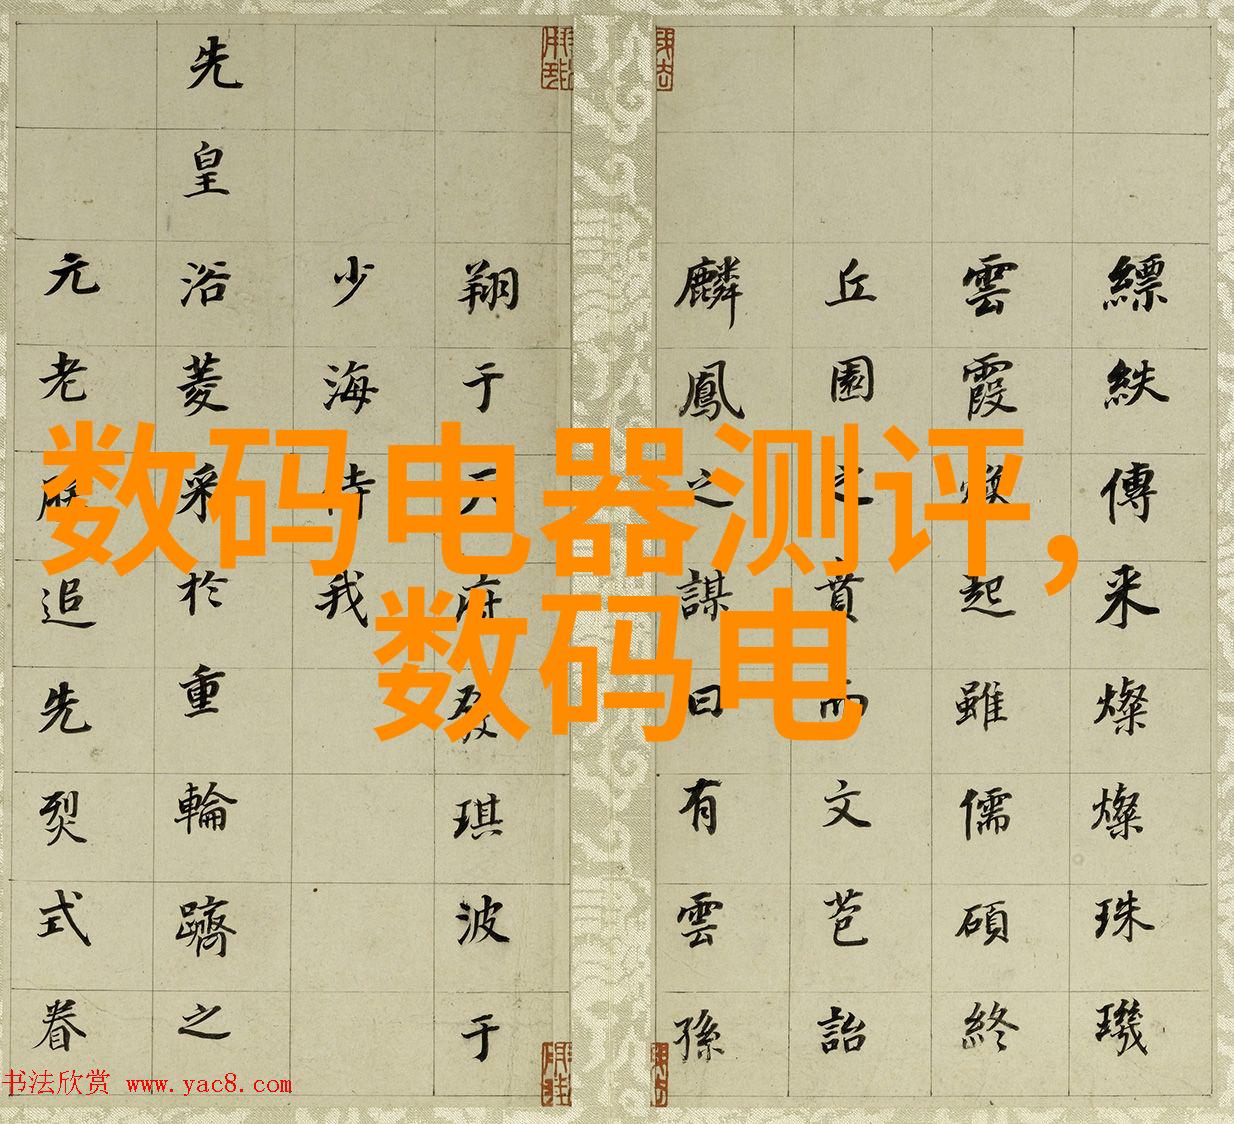 数码电器测评，
数码电
縹紩傳来燦燦珠璣
雲霞起雖儒碩終
丘園之賁而文芑詒
麟鳳之謀曰有雲孫
翔于府發琪波于
少海待我
先皇浴菱采於重輪躋之
元老追先烈式眷
书法欣赏 www.yac8.com